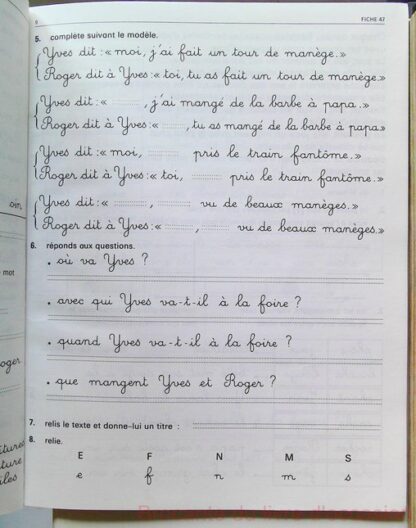 6 FICHE 47
5. complète suivant le modèle.
Yves dit : « moi, j'ai fait un tour de manège. »
Roger dit à Yves : « toi, tu as fait un tour de manège. »
Yves dit : « ........ , j'ai mangé de la barbe à papa. »
Roger dit à Yves : « ........ , tu as mangé de la barbe à papa. »
Yves dit : « moi, ........ pris le train fantôme. »
Roger dit à Yves : « toi, ........ pris le train fantôme. »
Yves dit : « ........ , ........ vu de beaux manèges. »
Roger dit à Yves : « ........ , ........ vu de beaux manèges. »
6. réponds aux questions.
• où va Yves ?
• avec qui Yves va-t-il à la foire ?
• quand Yves va-t-il à la foire ?
• que mangent Yves et Roger ?
7. relis le texte et donne-lui un titre :
8. relie.
E F N M S
e f n m s
oin,
mot
oger